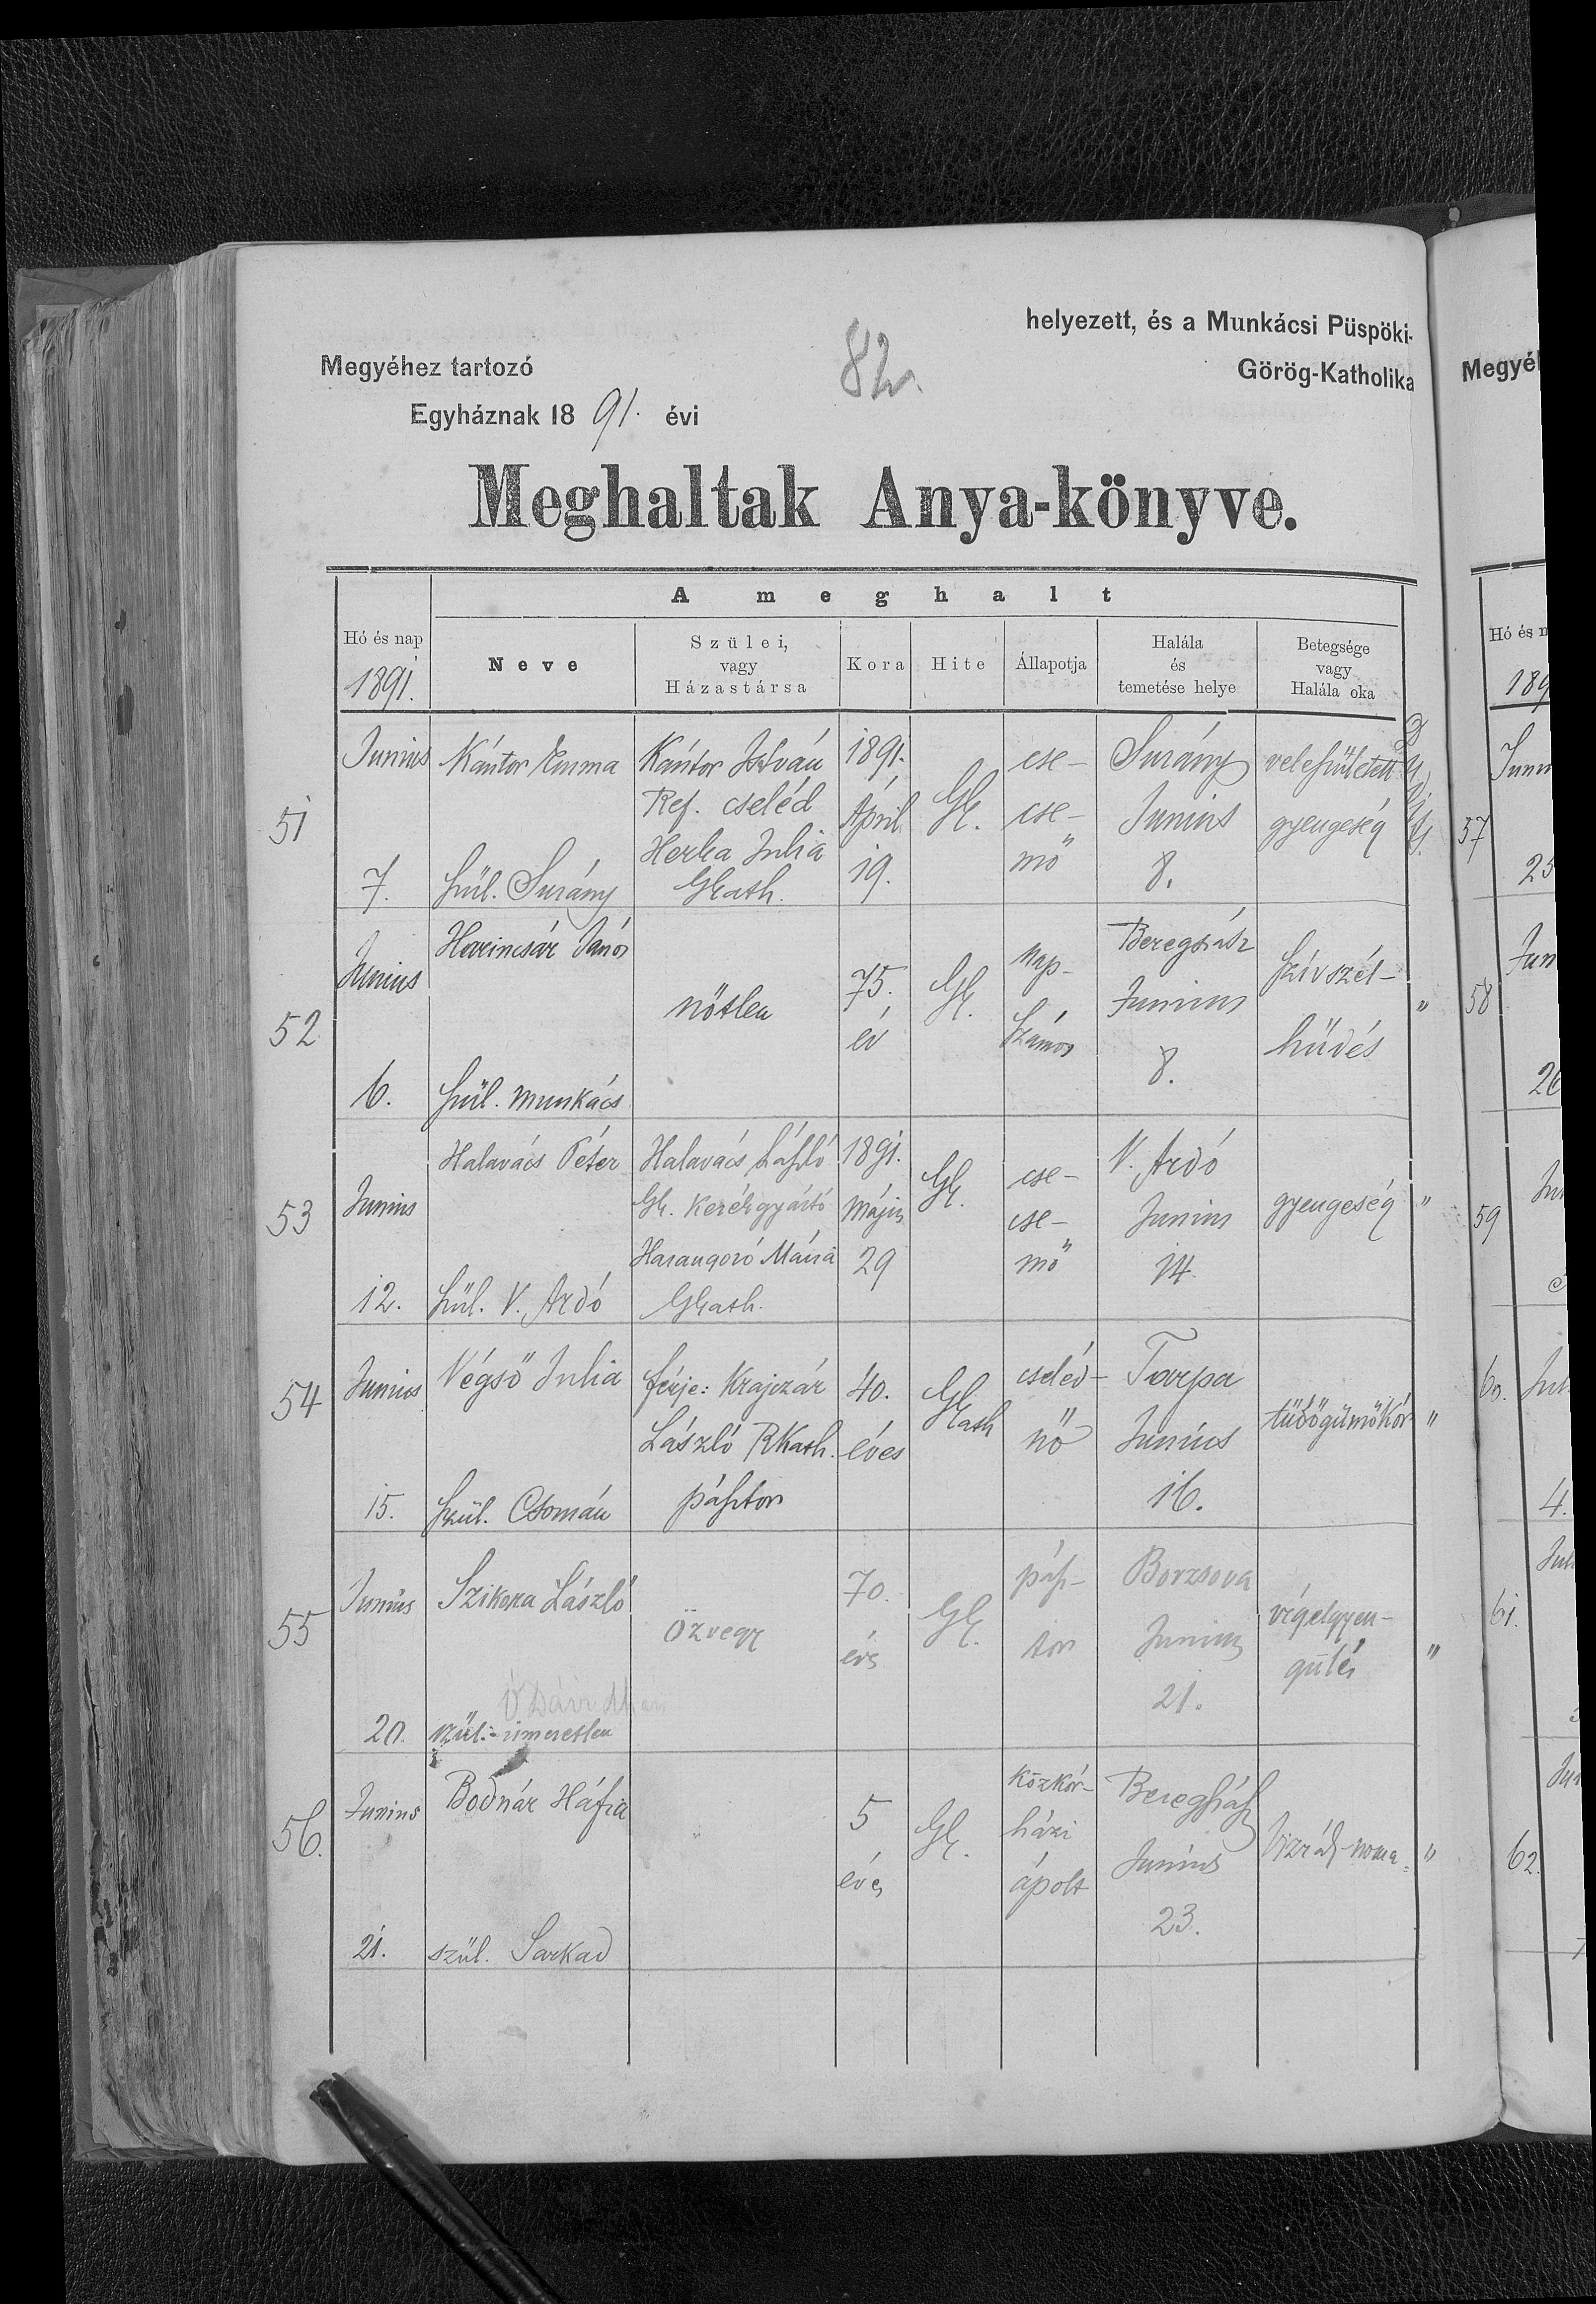 helyezett, és a Munkácsi Püspöki-
Megyéhez tartozó
82
Görög-Katholika
Megyéh
Egyháznak 18 91. évi
Meghaltak Anya-könyve.
A meghalt
Hó és nap
1891.
Neve
Szülei,
vagy
Házastársa
Kora
Hite
Állapotja
Halála
és
temetése helye
Betegsége
vagy
Halála oka
51
Junius
7.
Kántor Emma
szül. Surány
Kántor István
Ref. cseléd
Herka Julia
GKath.
1891.
April
19.
GK.
cse-
cse-
mő
Surány
Junius
8.
veleszületett
gyengeség
52
Junius
6.
Harincsár János
szül. Munkács
nőtlen
75.
év
GK.
nap-
számos
Beregszász
Junius
8.
szívszél-
hüdés
"
53
Junius
12.
Halavács Péter
szül. V. Ardó
Halavács László
Gk. Kerékgyártó
Harangozó Mária
GKath.
1891.
Május
29
GK.
cse-
cse-
mő
V. Ardó
Junius
14.
gyengeség
"
54
Junius
15.
Végső Julia
szül. Csomán
férje: Krajczár
László RKath.
pásztor
40.
éves
GKath
cseléd-
nő
Tarpa
Junius
16.
tüdőgümőkór
"
55
Junius
20.
Szikora László
szül.: ismeretlen
özvegy
70.
éves
GK.
pász-
tor
Borzsova
Junius
21.
végelgyen-
gülés
"
56.
Junius
21.
Bodnár Háfia
szül. Sarkad
5
éves
GK.
közkór-
házi
ápolt
Beregszász
Junius
23.
Vizrák-noma
"
Hó és n
189
57
Juni
25
58
Jun
26
59
60.
4.
61.
62.